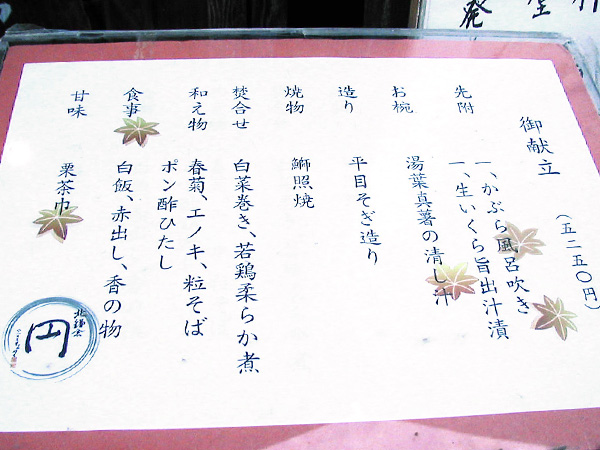 御献立
（五二五〇円）
先附
一、かぶら風呂吹き
一、生いくら旨出汁漬
お椀
湯葉真薯の清し汁
造り
平目そぎ造り
焼物
鰤照焼
焚合せ
白菜巻き、若鶏柔らか煮
和え物
春菊、エノキ、粒そば
ポン酢ひたし
食事
白飯、赤出し、香の物
甘味
栗茶巾
北鎌倉
円